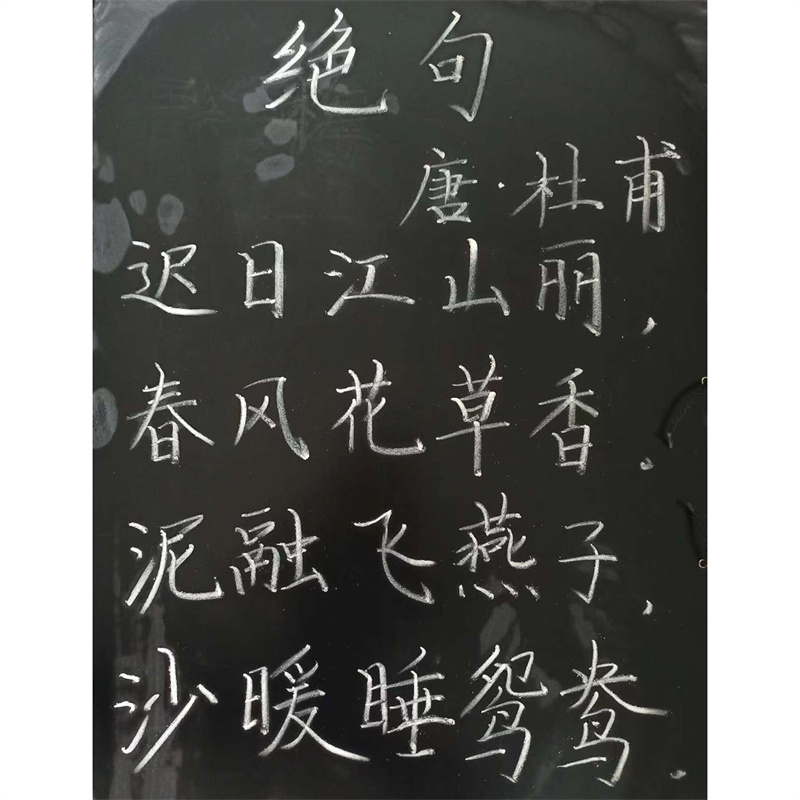 绝句
唐·杜甫
迟日江山丽,
春风花草香.
泥融飞燕子,
沙暖睡鸳鸯.